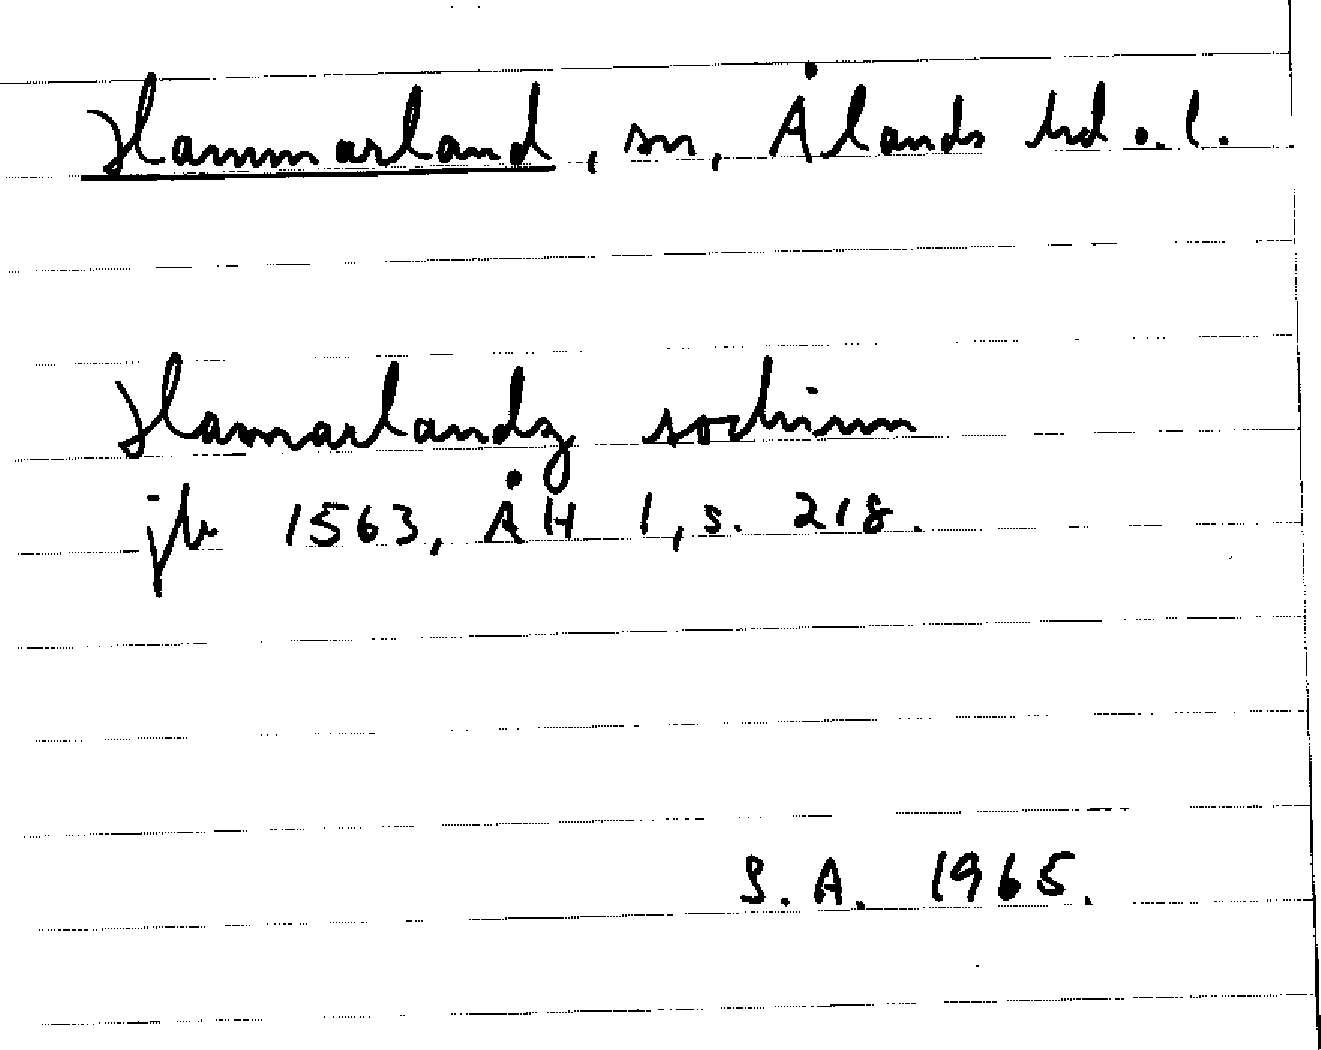 Hammarland, sn, Ålands hd o. l.
Hamarlandz sochnn
jb 1563, ÅH 1, s. 218.
S. A. 1965.